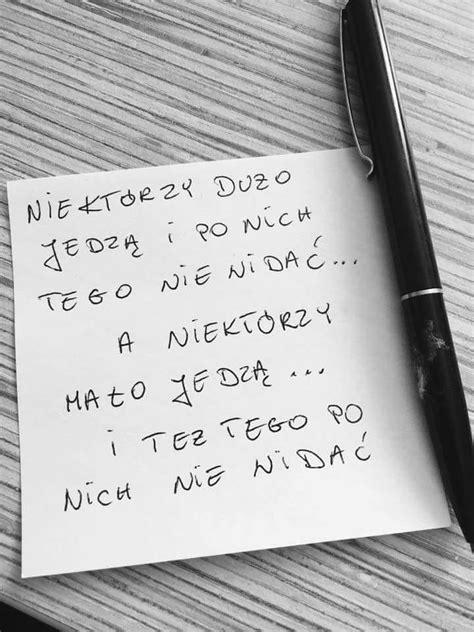 NIEKTÓRZY DUŻO
JEDZĄ i PO NICH
TEGO NIE WIDAĆ...
A NIEKTÓRZY
MAŁO JEDZĄ ...
i TEŻ TEGO PO
NICH NIE WIDAĆ